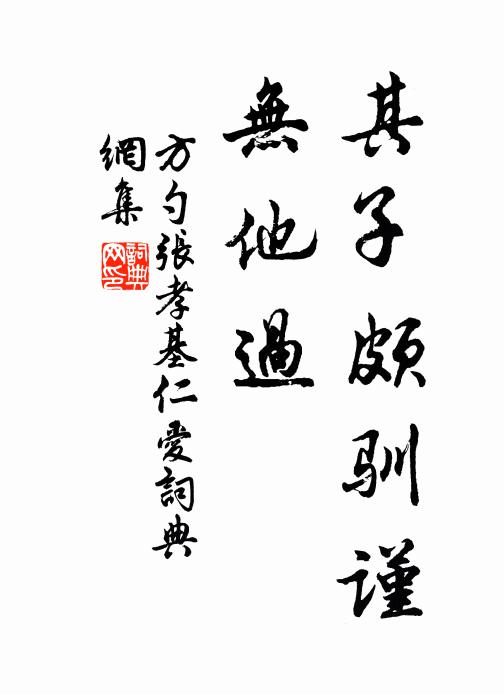 其子頗馴謹
無他過
方勺張孝基仁愛詞典
網集
詞典
网印